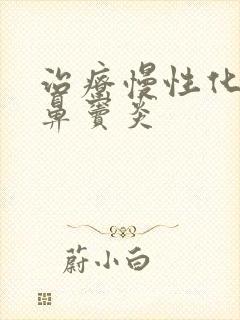 治疗慢性化
鼻窦炎
蔚小白